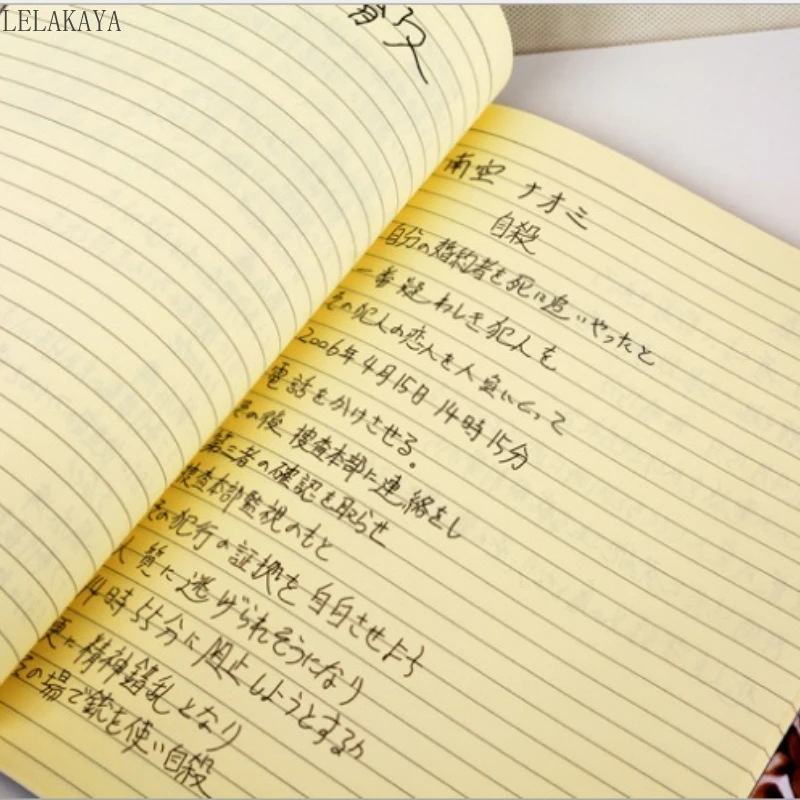 LELAKAYA
南空 ナオミ
自殺
自分の婚約者を死に追いやったと
一番疑わしき犯人を
その犯人の恋人を人質にとって
2006年4月15日 14時15分
電話をかけさせる。
その後 捜査本部に連絡をし
第三者の確認を取らせ
捜査本部監視のもと
その犯行の証拠を自白させようと
人質に逃げられそうになり
14時55分に阻止しようとするが
更に精神錯乱となり
その場で銃を使い自殺